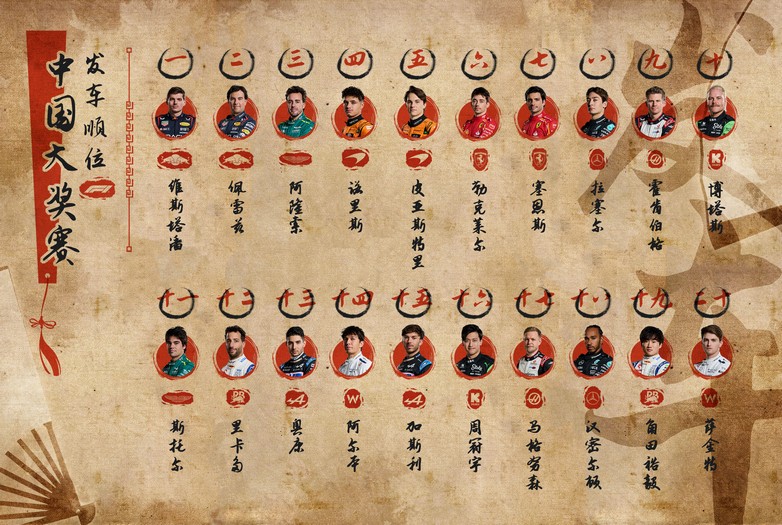 中国大奖赛
发车顺位
一 二 三 四 五 六 七 八 九 十
维斯塔潘
佩雷兹
阿隆索
诺里斯
皮亚斯特里
勒克莱尔
塞恩斯
拉塞尔
霍肯伯格
博塔斯
十一 十二 十三 十四 十五 十六 十七 十八 十九 二十
斯托尔
里卡多
奥康
阿尔本
加斯利
周冠宇
马格努森
汉密尔顿
角田裕毅
萨金特